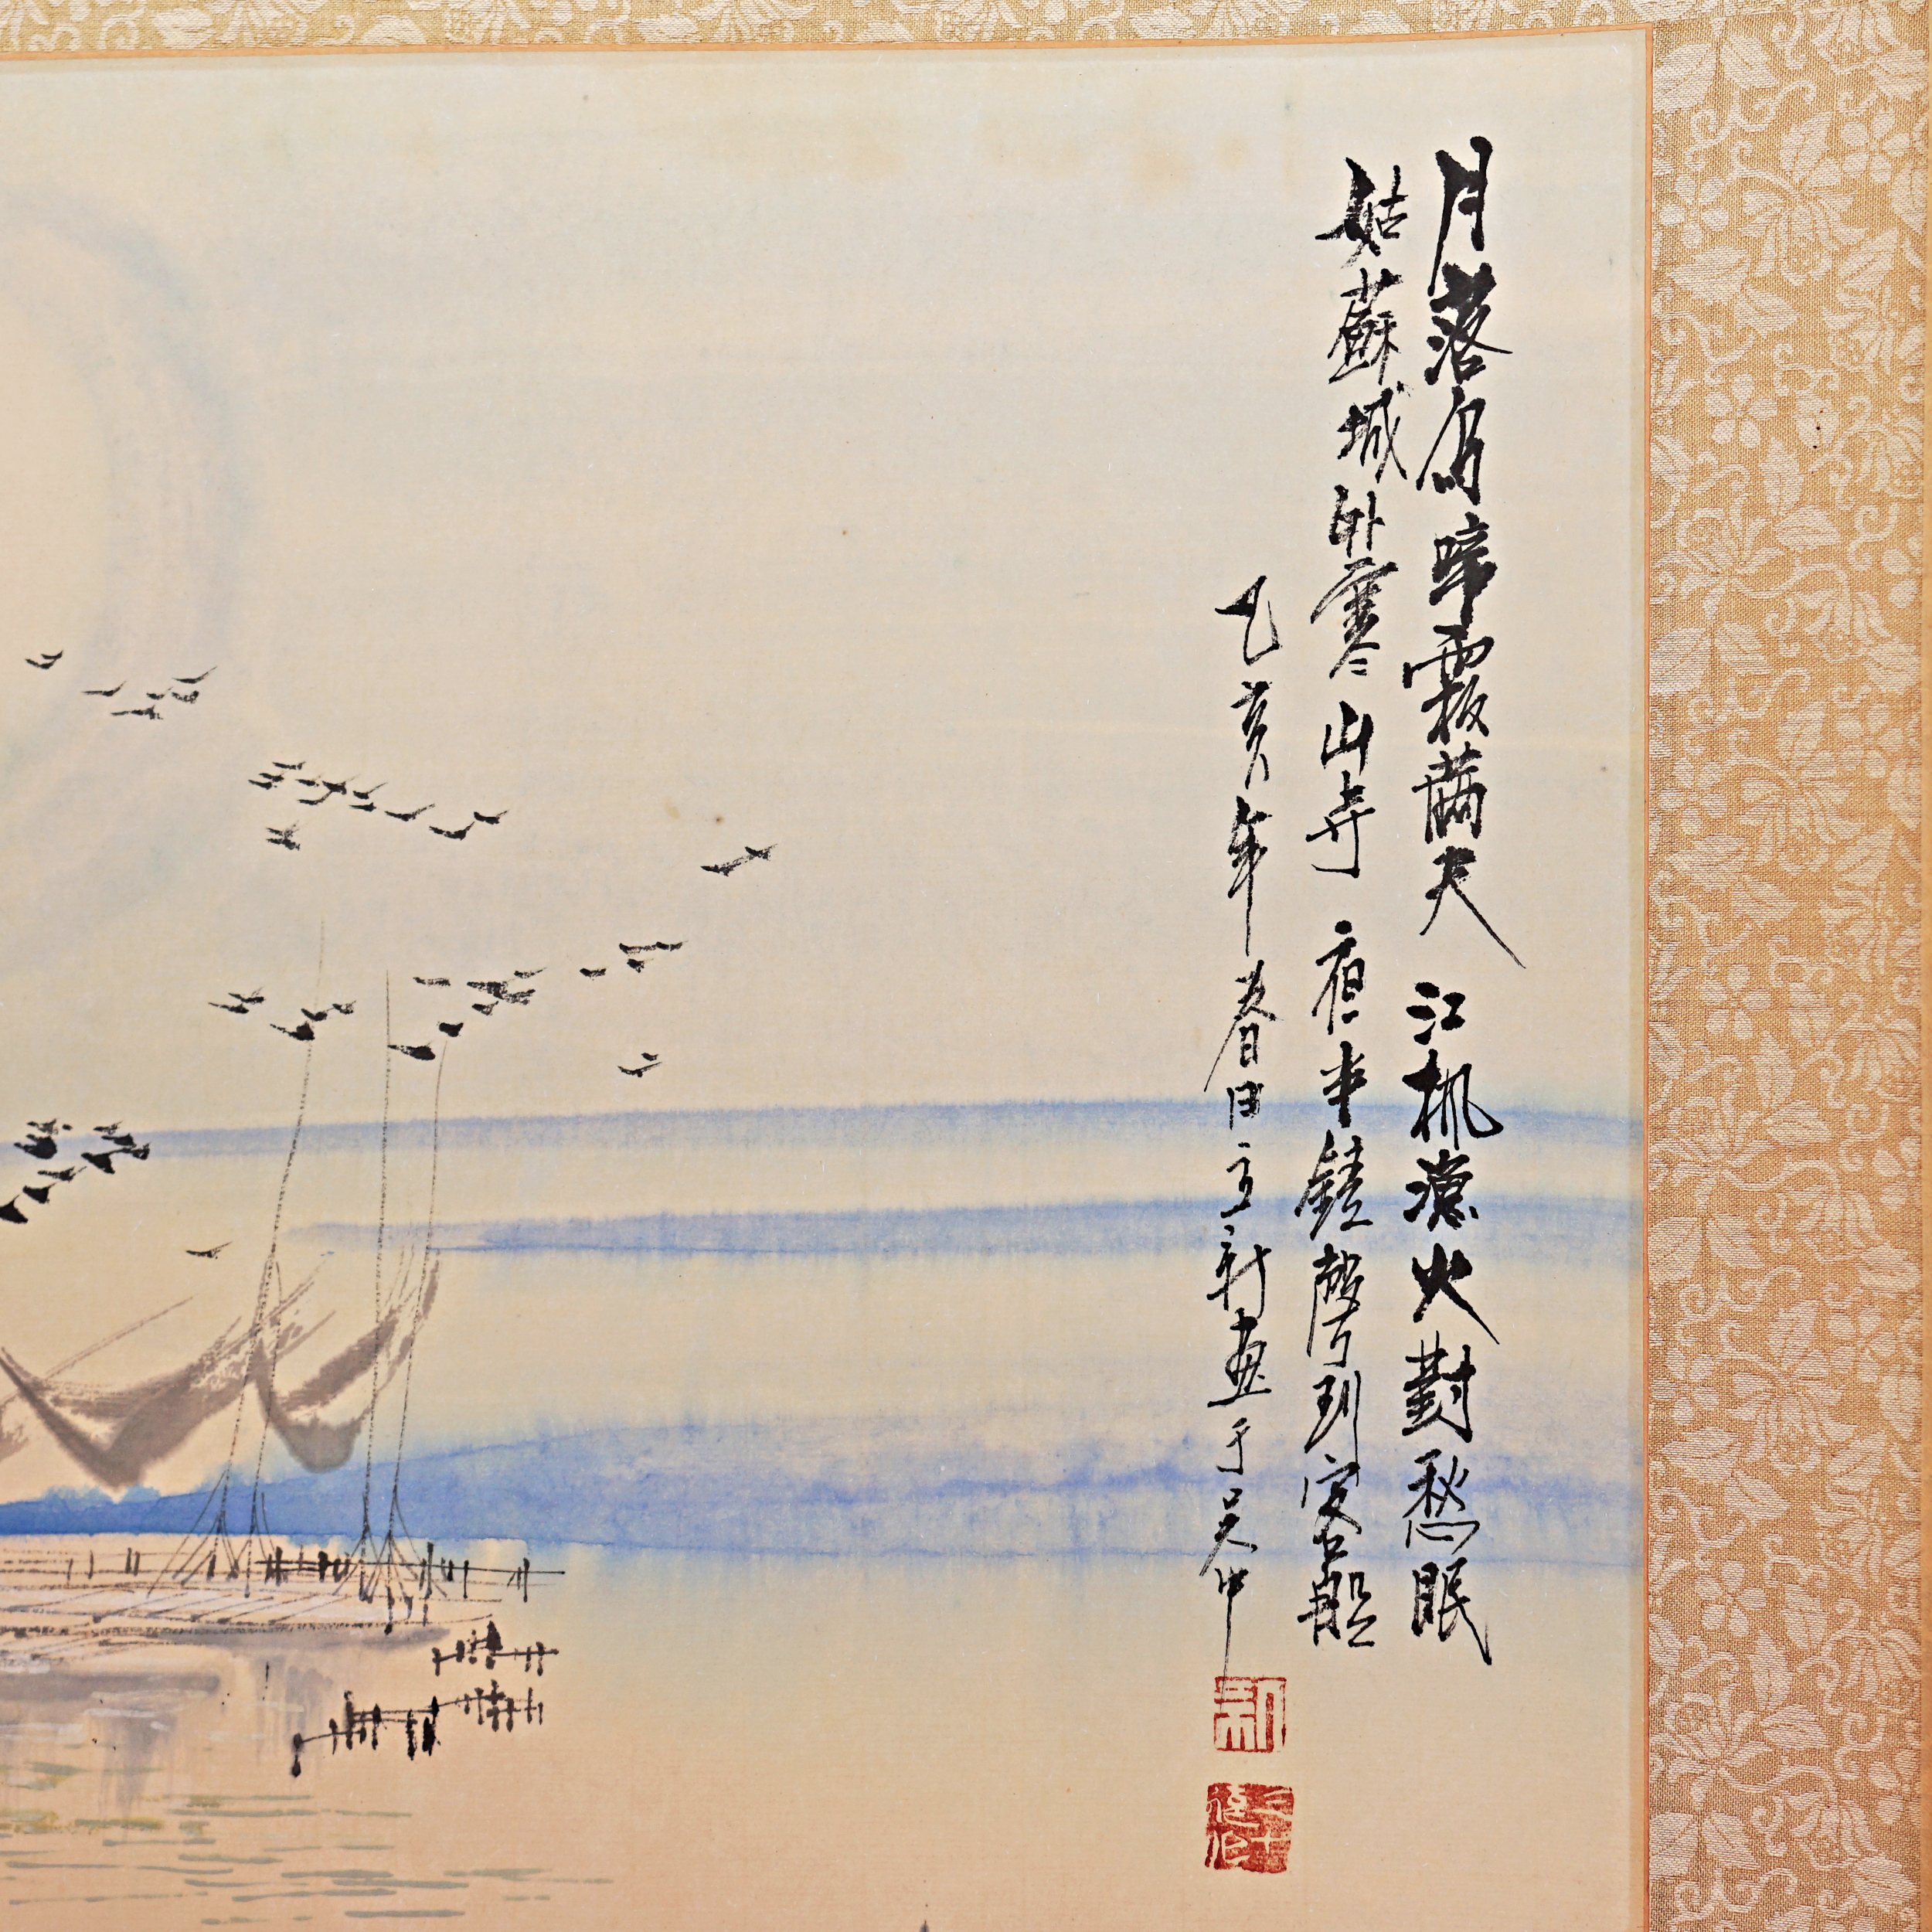 月落烏啼霜滿天 江楓漁火對愁眠
姑蘇城外寒山寺 夜半鐘聲到客船
乙亥年春日新畫于吳中